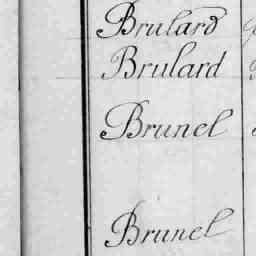 Brulard
Brulard
Brunel
Brunel